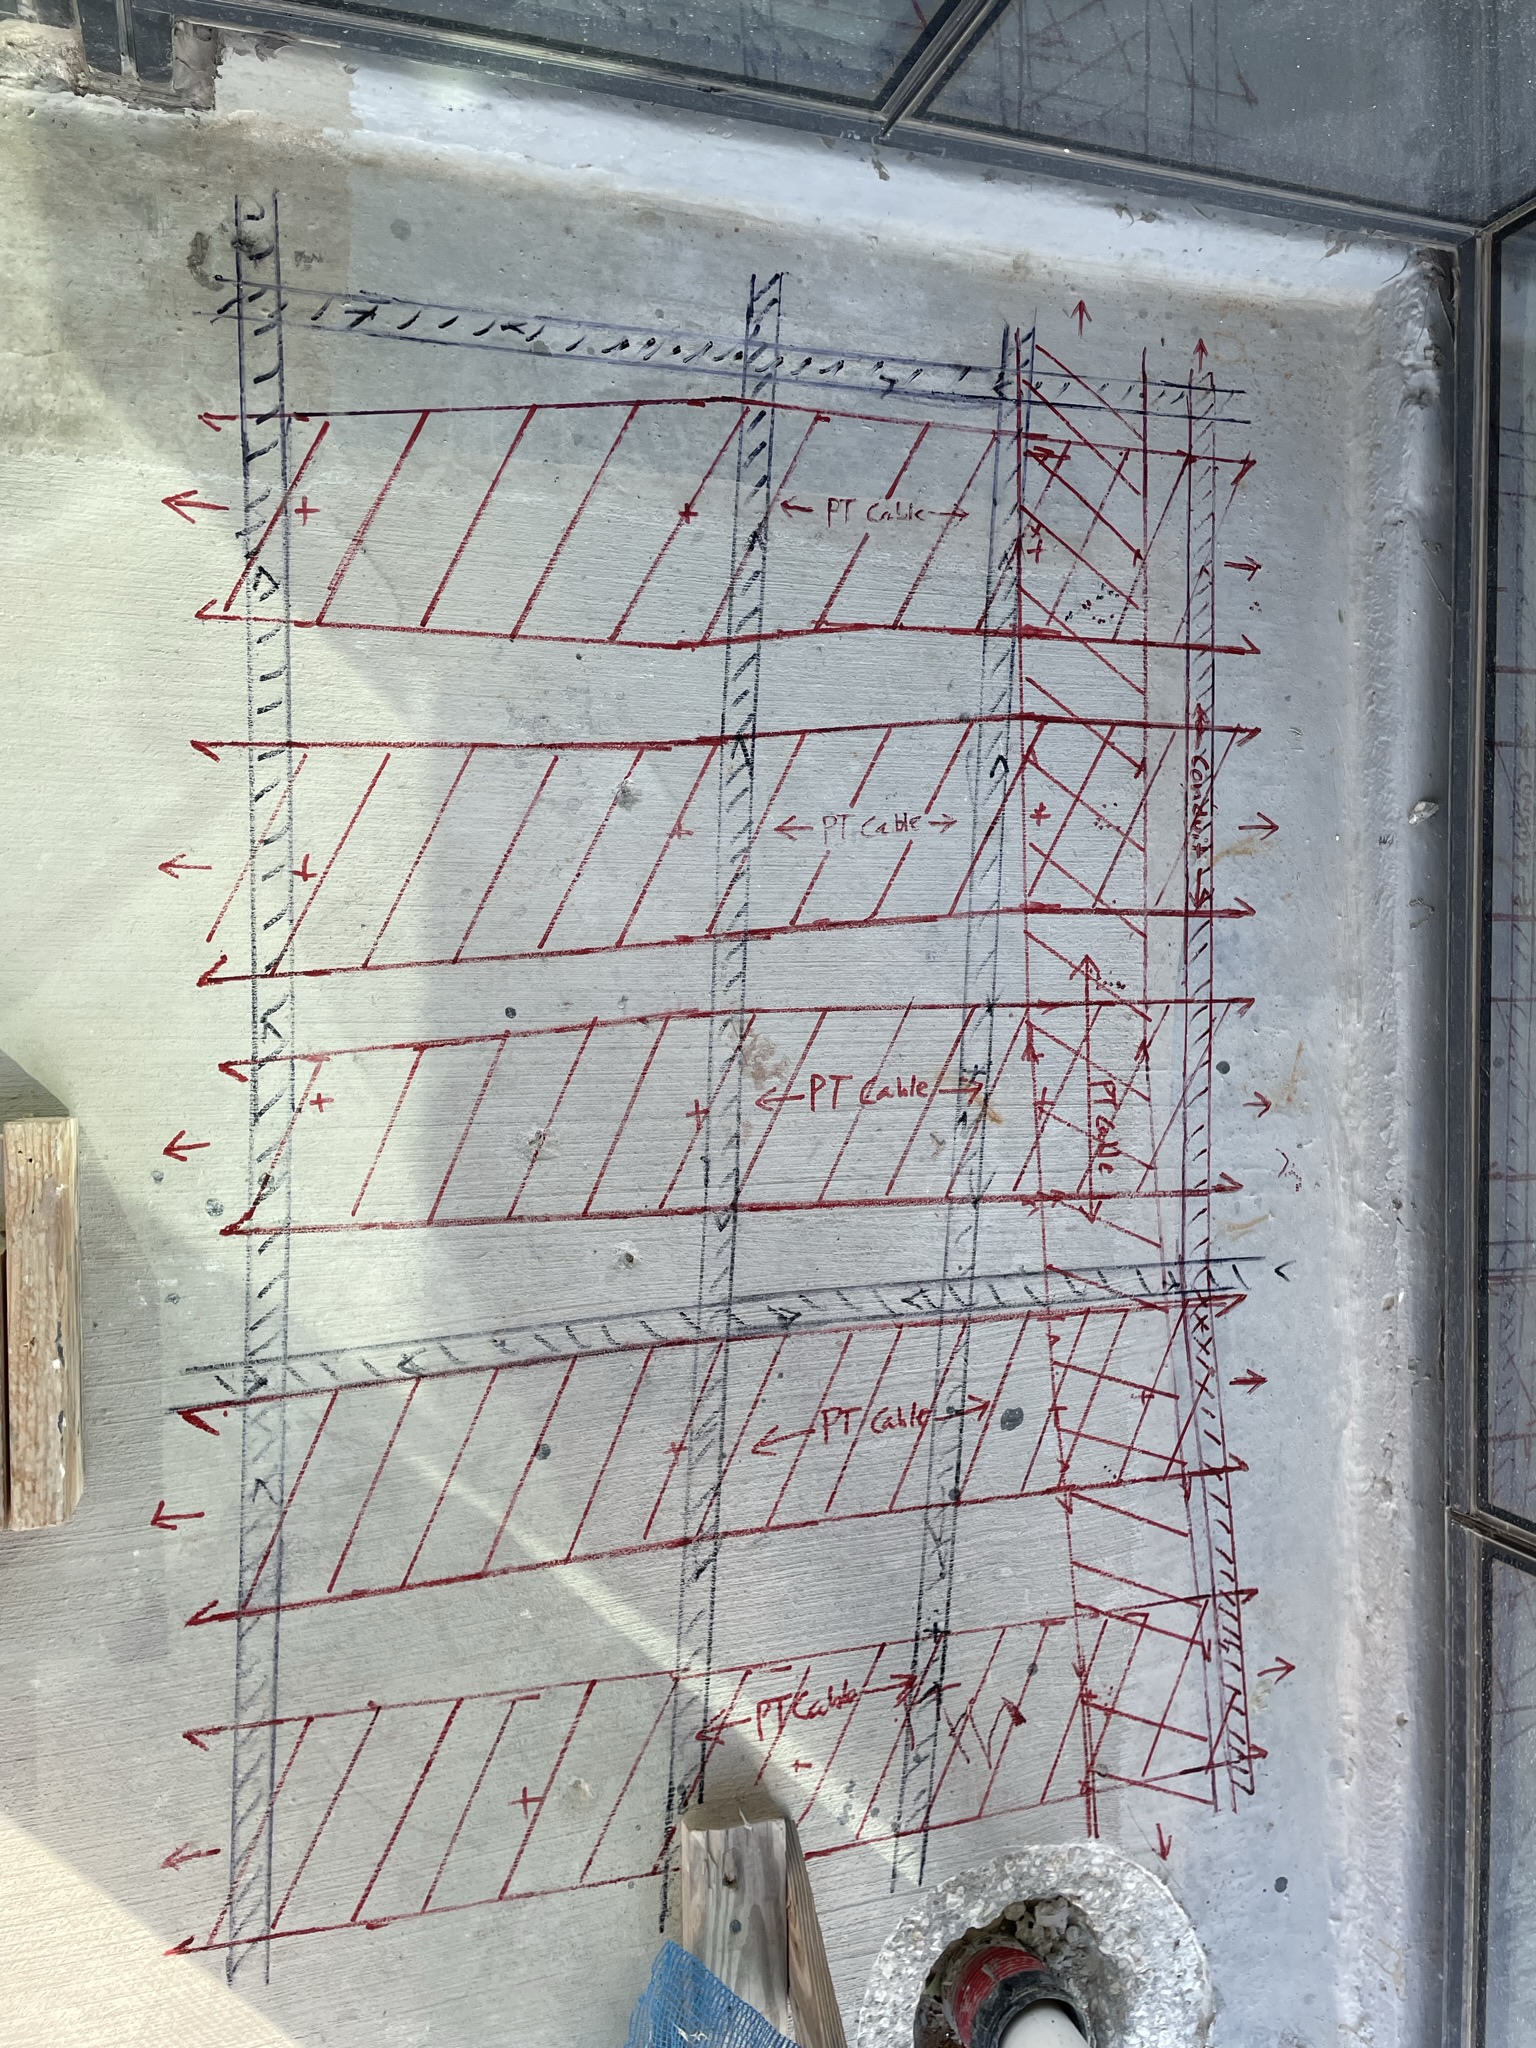 Conduit
PT Cable
PT Cable
PT Cable
PT Cable
PT Cable
PT Cable